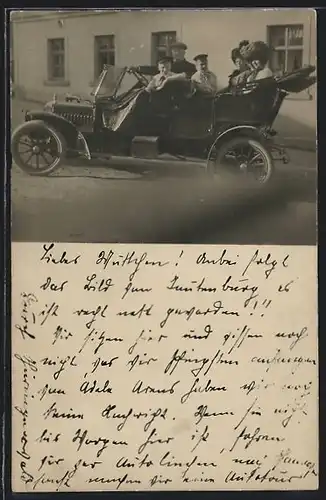 Liebes Muttchen! Anbei folgt
das Bild von Tautenburg es
ist recht nett geworden!!
Wir sitzen hier und wissen noch
nicht was wir Pfingsten anfangen
von Adele Arens haben wir noch
keine Nachricht. Wenn sie nicht
bis Morgen hier ist, fahren
wir per Autolinchen nach
sonst machen wir eine Autotour
durch